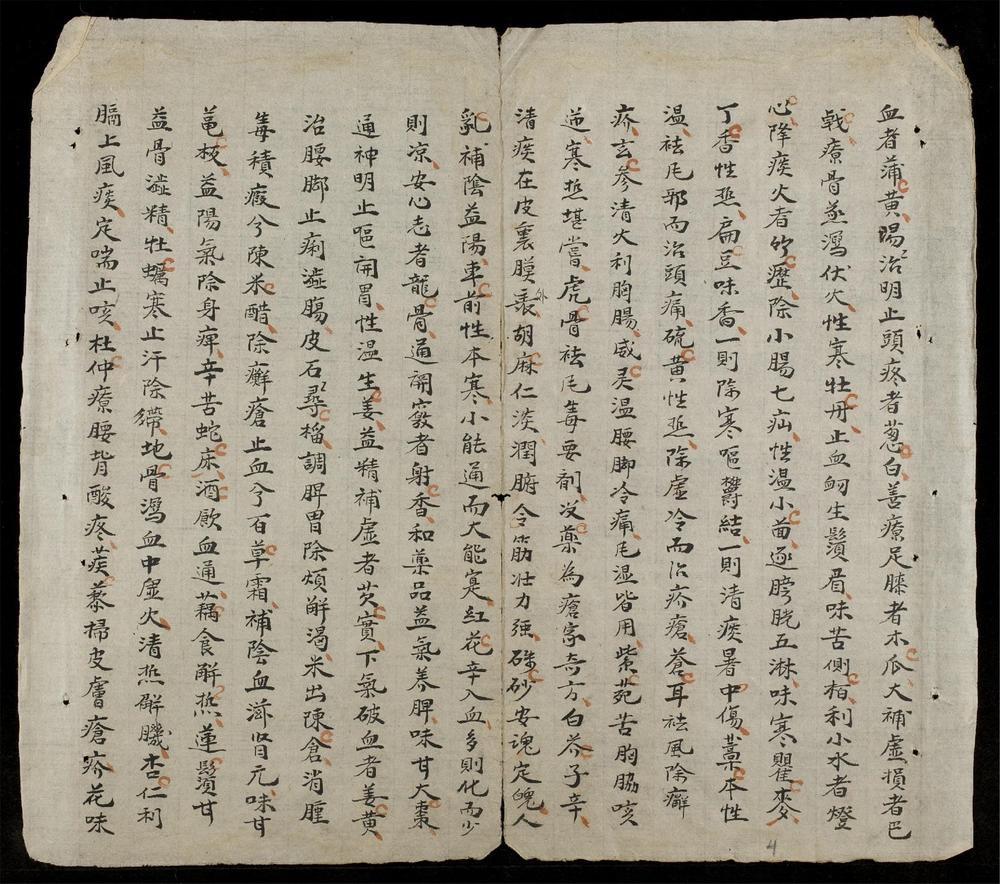 血者蒲黄陽治明止頭疼者葱白善療足膝者木瓜大補虚損者巴
戟療骨蒸瀉伏火性寒牡丹止血衂生鬚眉味苦側栢利小水者燈
心降痰火者竹瀝除小腸七疝性温小茴逐膀胱五淋味寒瞿麥
丁香性𤍠扁豆味香一則除寒嘔欝結一則清痰暑中傷藁本性
温祛𠘨邪而治頭痛硫黄性𤍠除虚冷而治疥瘡蒼耳祛風除癬
疥玄參清火利胸腸威灵温腰脚冷痛𠘨湿皆用紫菀苦胸脇咳
逆寒𤍠堪嘗虎骨祛𠘨毒要剤没薬為瘡家奇方白芥子辛
清痰在皮裏膜表外胡麻仁淡潤腑令筋壮力强硃砂安魂定魄人
乳補陰益陽車前性本寒小能通而大能寔红花辛入血多則化而少
則凉安心志者龍骨通開竅者射香和薬品益氣养脾味甘大棗
通神明止嘔開胃性温生姜益精補虚者芡實下氣破血者姜黄
治腰脚止痢澁腸皮石榴調脾胃除煩解渴米出陳倉消腫
毒積瘕兮陳米醋除癬瘡止血兮百草霜補陰血滋肾元味甘
黾板益陽氣除身痺辛苦蛇床酒歐血通藕食解𤍠蓮鬚甘
益骨澁精牡蠣寒止汗除帶地骨瀉血中虚火清𤍠解肌杏仁利
膈上風痰定喘止咳杜仲療腰背酸疼蒺藜掃皮膚瘡疥花味
4